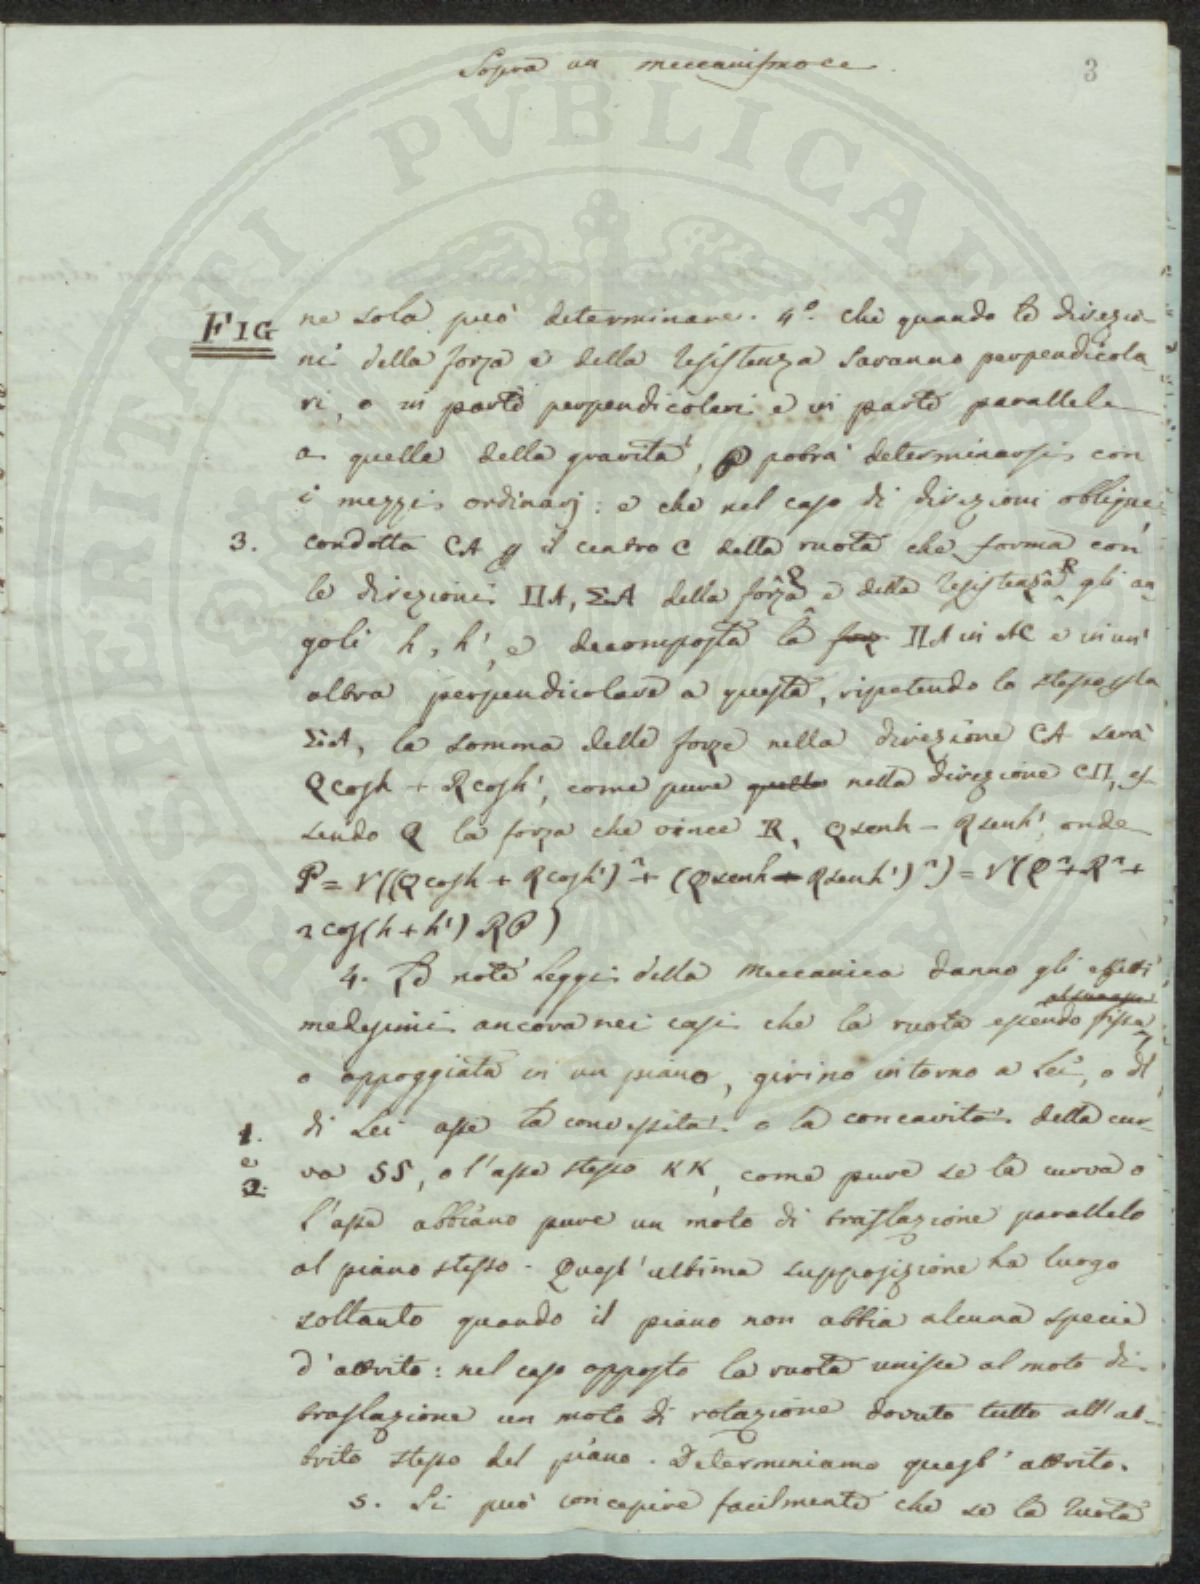 Sopra un meccanismo ec.
3
FIG
ne sola può determinare. 4º. che quando le direzio-
ni della forza e della resistenza saranno perpendicola
ri, o in parte perpendicolari e in parte parallele
a quelle della gravità, P potrà determinarsi con
i mezzi ordinarj: e che nel caso di direzioni oblique,
3. condotta CA pel centro C della ruota che forma con
le direzioni ΠA, ΣA della forza Q e della resistenza R gli an
goli h, h', e decomposta la for ΠA in AC e in un'
altra perpendicolare a questa, ripetendo lo stesso sulla
ΣA, la somma delle forze nella direzione CA sarà
Qcosh + Rcosh', come pure quella nella direzione CΠ, es
sendo Q la forza che vince R, Qsenh - Rsenh', onde
P = √((Qcosh + Rcosh')² + (Qsenh - Rsenh')²) = √(Q² + R² +
2cos(h+h') RQ)
4. Le note leggi della meccanica danno gli effetti
medesimi ancora nei casi che la ruota essendo fissa,
o appoggiata in un piano, girino intorno a lei, o al
di lei asse la convessità o la concavità della cur-
1. e 2. va SS, o l'asse stesso KK, come pure se la curva o
l'asse abbiano pure un moto di traslazione parallelo
al piano stesso. Quest'ultima supposizione ha luogo
soltanto quando il piano non abbia alcuna specie
d'attrito: nel caso opposto la ruota unisce al moto di
traslazione un moto di rotazione dovuto tutto all'at-
trito stesso del piano. Determiniamo quest'attrito.
5. Si può concepire facilmente che se la ruota